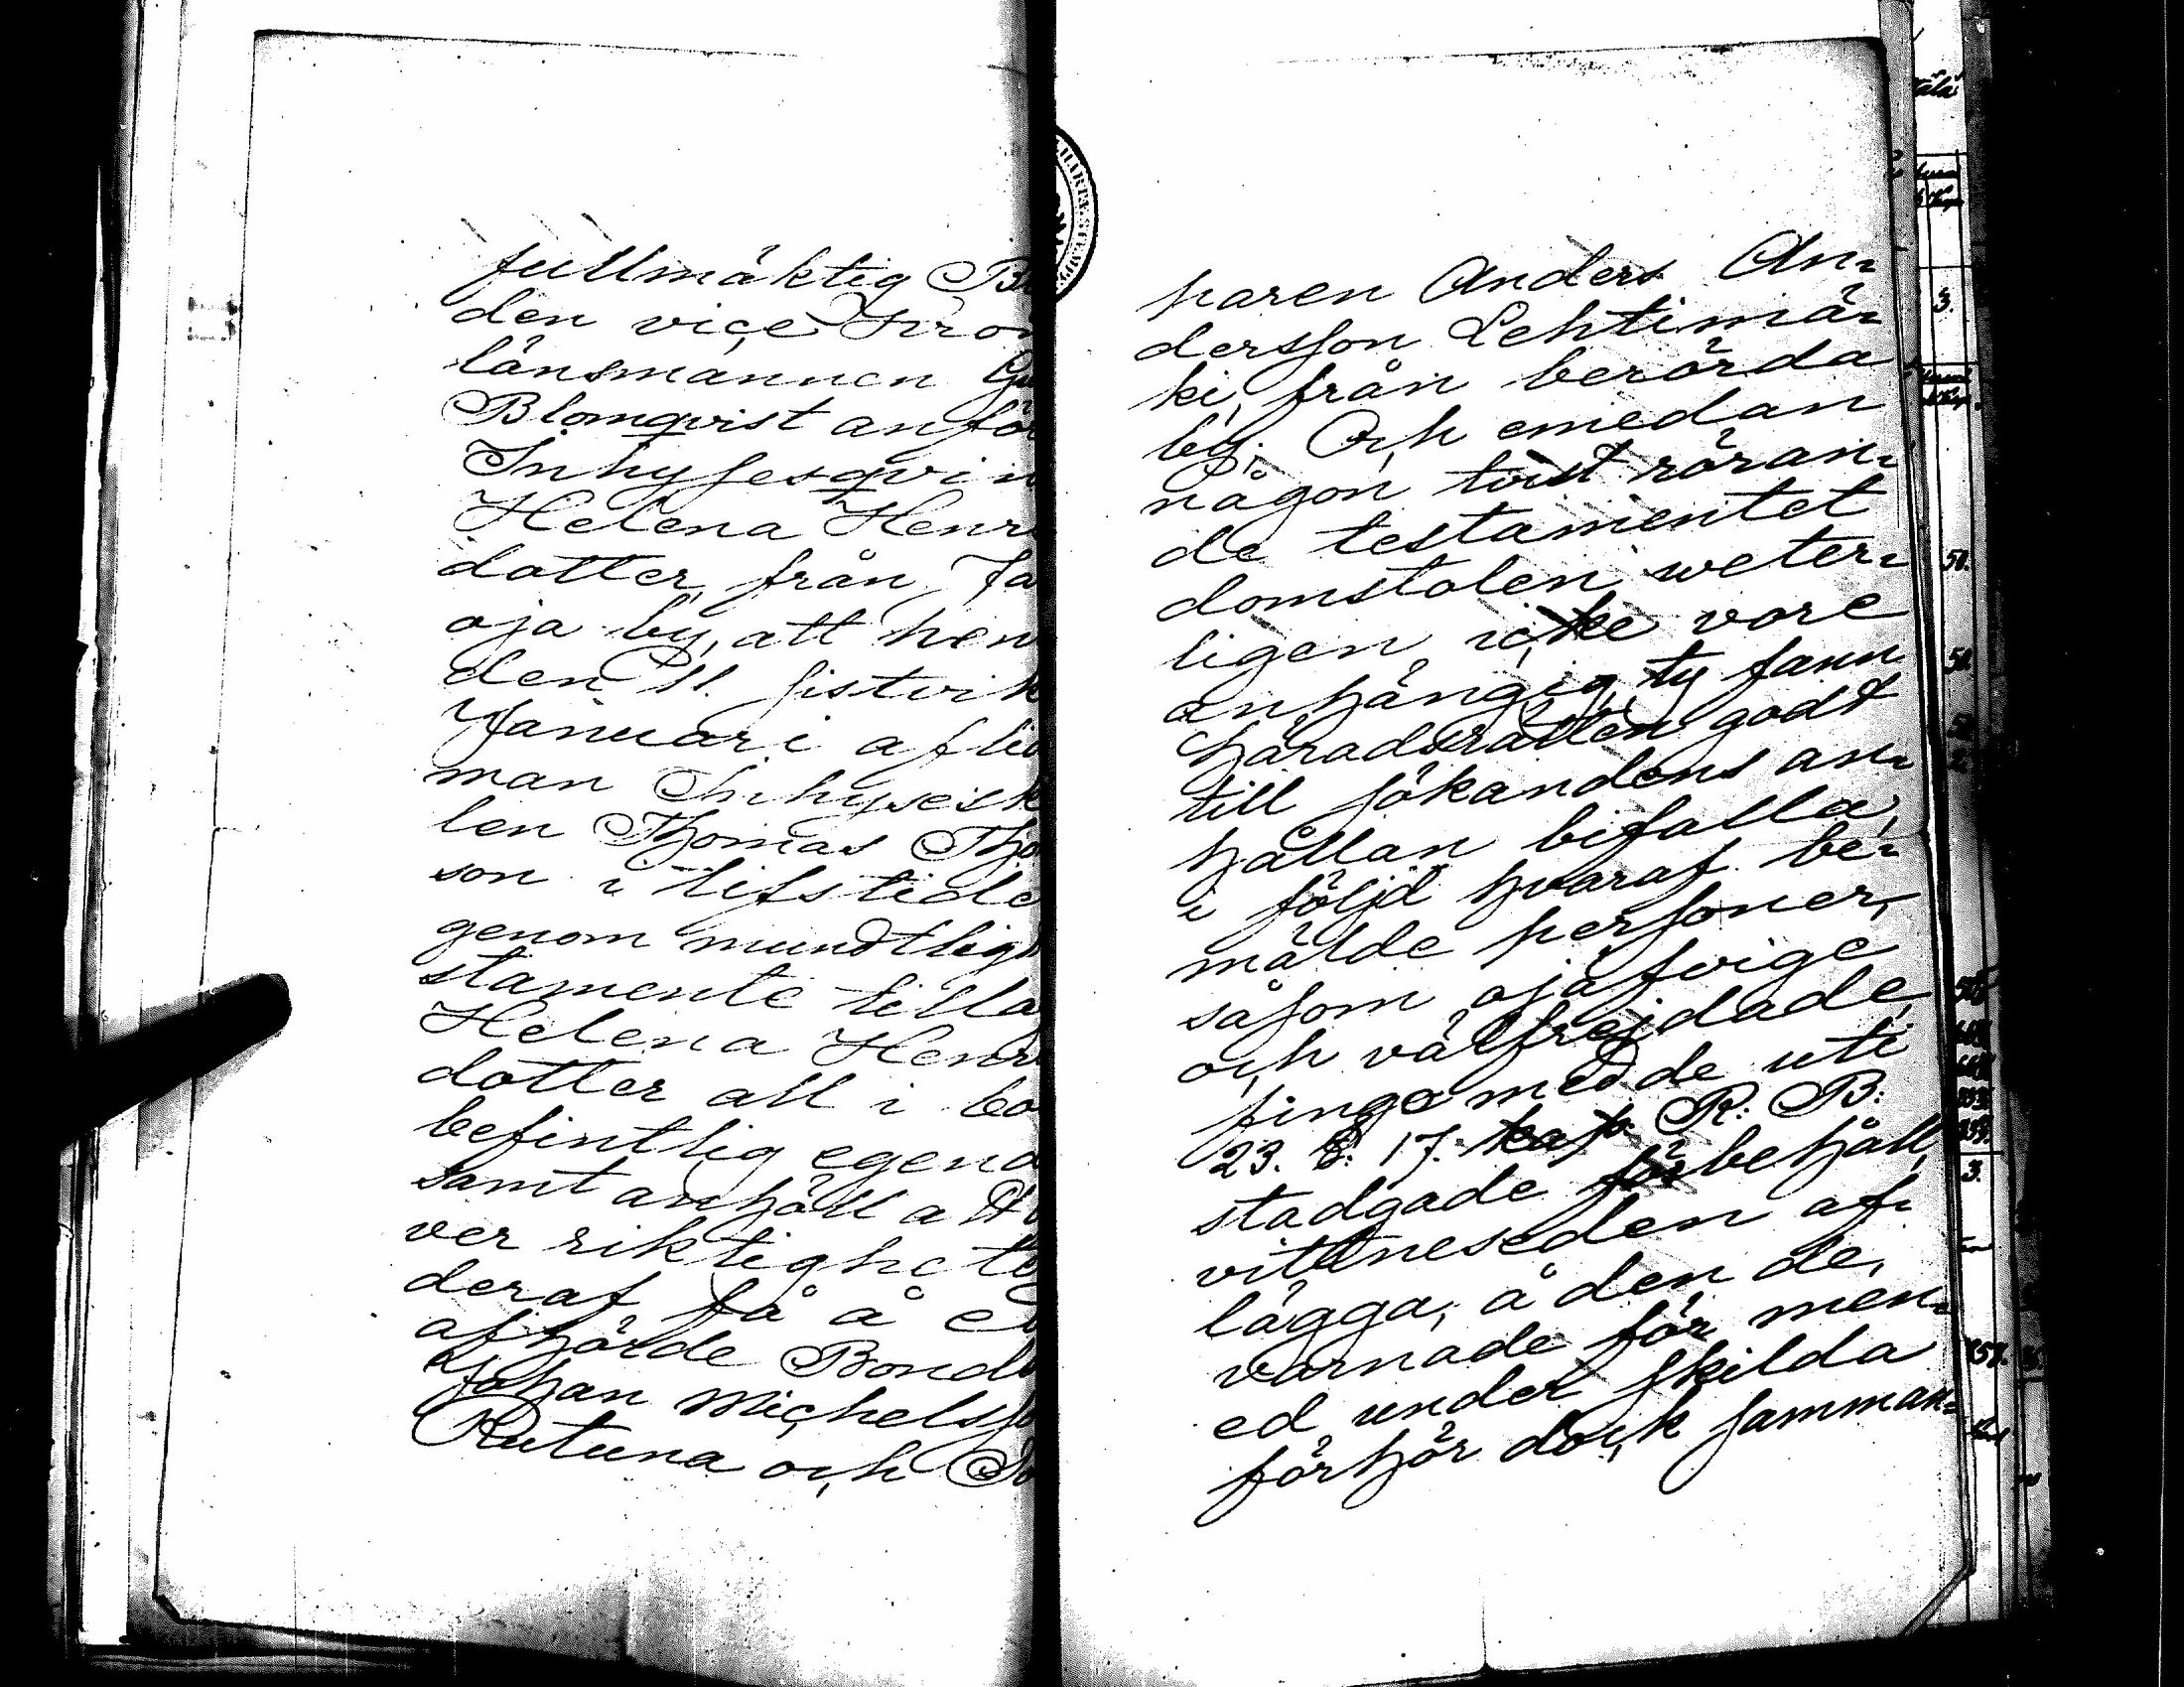 fullmäktig B
den vice Kron
länsmannen Gu
Blomqvist anför
Inhysesqvin
Helena Henri
dotter från Ja
oja by, att hen
den 11. sistvik
Januari aflid
man Inhyseska
len Thomas Tho
son i lifstide
genom mundtligt
stamente tilla
Helena Henri
dotter all i bo
befintlig egend
samt anhöll att
ver riktighete
deraf få å e
afhörde Bond
Johan Michelsso
Rutuna och To
paren Anders An-
dersson Lehtimä-
ki från berörda
by. Och emedan
någon tvist röran-
de testamentet
domstolen veter-
ligen icke vore
anhängig, ty fann
häradsrätten godt
till sökandens an-
hållan bifalla,
i följd hvaraf be-
mälde personer,
såsom ojäfvige
och välfrejdade,
fingo med de uti
23. §. 17. kap. R: B:
stadgade förbehåll,
vittneseden af-
lägga, å den de,
varnade för men-
ed under skilda
förhör dock samman-